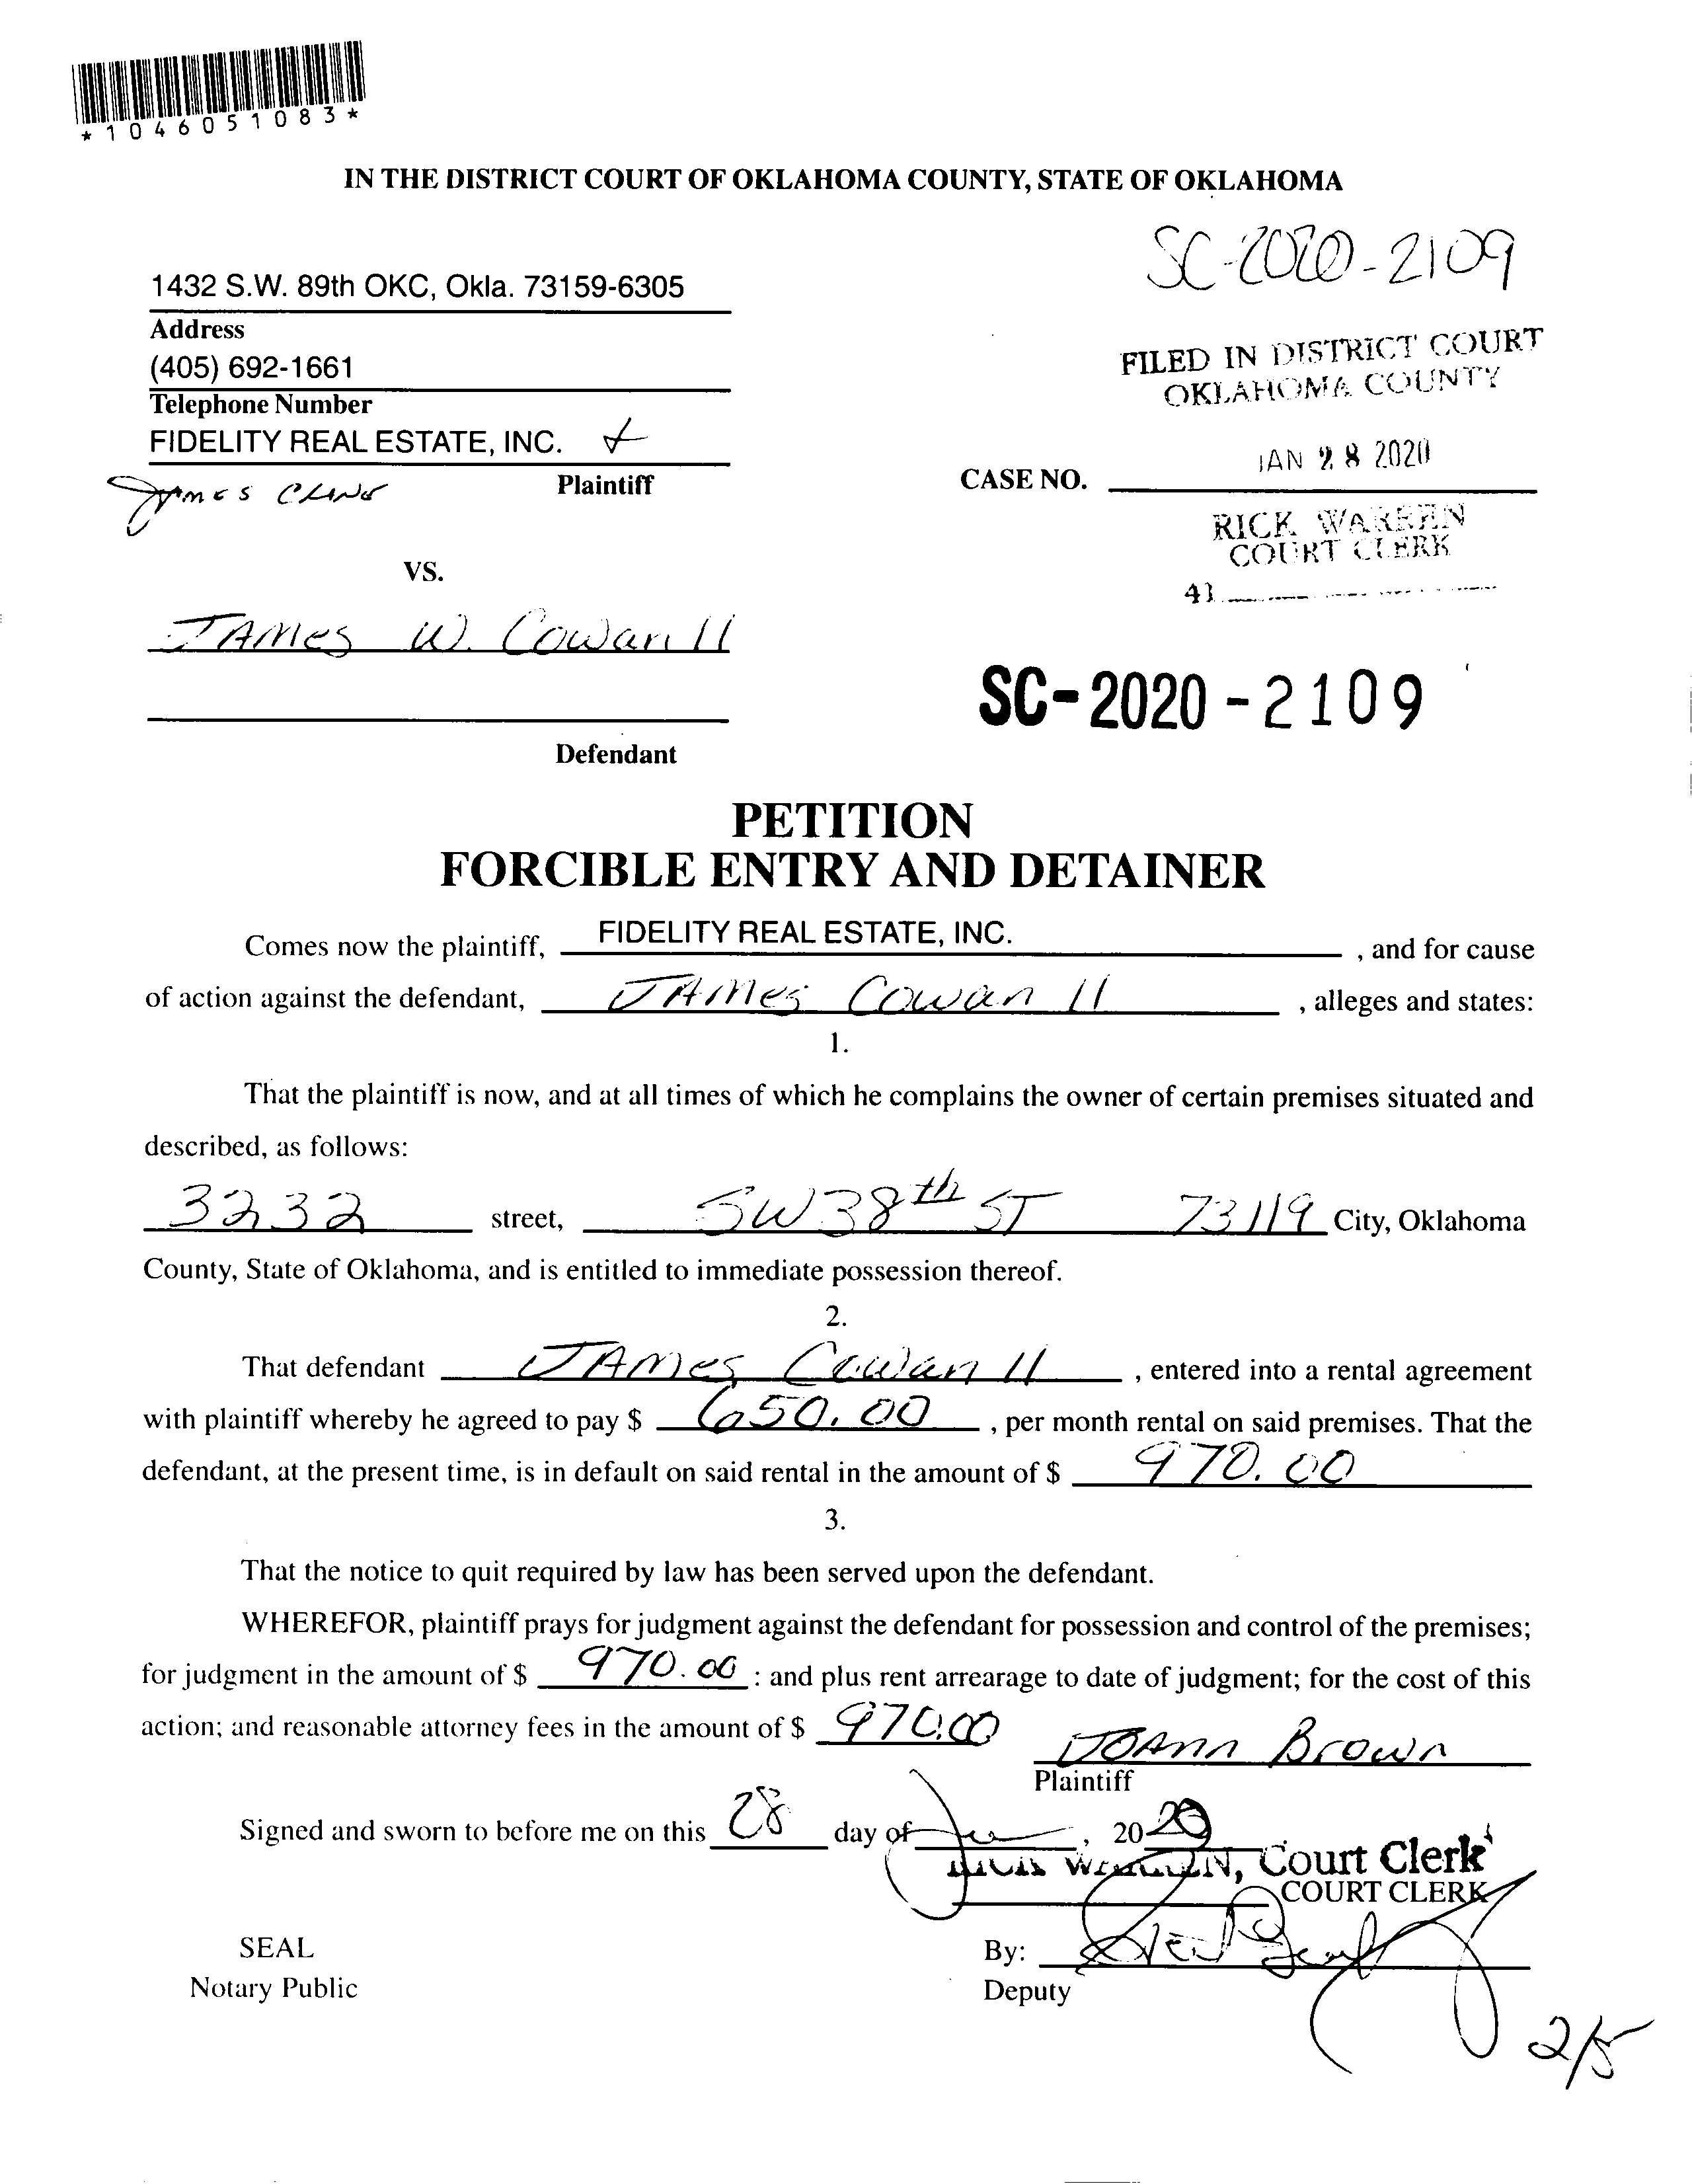 *1046051083*
IN THE DISTRICT COURT OF OKLAHOMA COUNTY, STATE OF OKLAHOMA
SC-2020-2109
1432 S.W. 89th OKC, Okla. 73159-6305
Address
(405) 692-1661
Telephone Number
FIDELITY REAL ESTATE, INC. &
Plaintiff
James Cline
FILED IN DISTRICT COURT
OKLAHOMA COUNTY
JAN 28 2020
CASE NO.
RICK WARREN
COURT CLERK
41
VS.
James W. Cowan II
SC-2020-2109
Defendant
PETITION
FORCIBLE ENTRY AND DETAINER
Comes now the plaintiff, FIDELITY REAL ESTATE, INC. , and for cause
of action against the defendant, James Cowan II , alleges and states:
1.
That the plaintiff is now, and at all times of which he complains the owner of certain premises situated and
described, as follows:
3232 street, SW 38th ST 73119 City, Oklahoma
County, State of Oklahoma, and is entitled to immediate possession thereof.
2.
That defendant James Cowan II , entered into a rental agreement
with plaintiff whereby he agreed to pay $ 650.00 , per month rental on said premises. That the
defendant, at the present time, is in default on said rental in the amount of $ 970.00
3.
That the notice to quit required by law has been served upon the defendant.
WHEREFOR, plaintiff prays for judgment against the defendant for possession and control of the premises;
for judgment in the amount of $ 970.00 : and plus rent arrearage to date of judgment; for the cost of this
action; and reasonable attorney fees in the amount of $ 970.00
JoAnn Brown
Plaintiff
Signed and sworn to before me on this 28 day of Jan , 2020
RICK WARREN, Court Clerk
COURT CLERK
SEAL
By:
Notary Public
Deputy
2/5